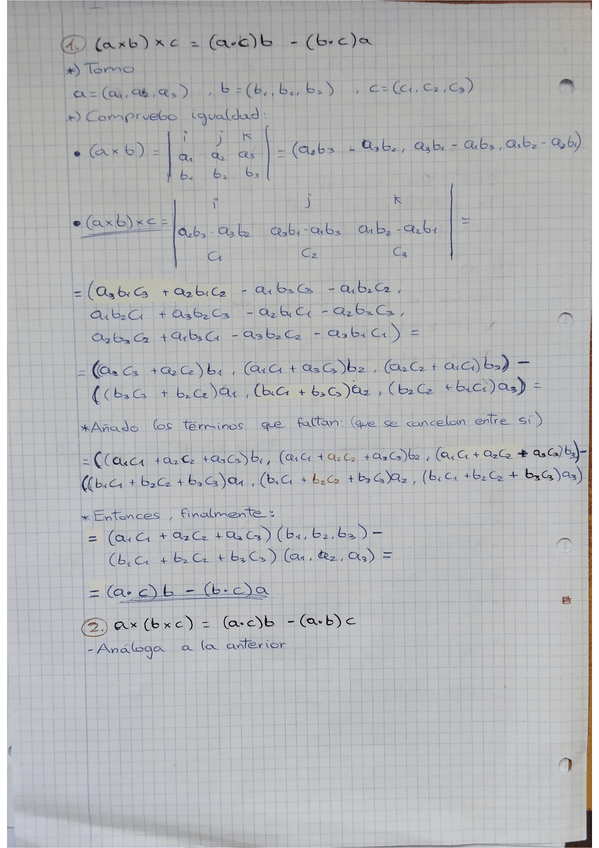 1. (a×b)×c = (a·c)b - (b·c)a
*) Tomo
a=(a1,a2,a3) , b=(b1,b2,b3) , c=(c1,c2,c3)
*) Compruebo igualdad:
• (a×b) = | i j k | = (a2b3 - a3b2, a3b1 - a1b3, a1b2 - a2b1)
a1 a2 a3
b1 b2 b3
i j k
• (a×b)×c = | a2b3-a3b2 a3b1-a1b3 a1b2-a2b1 | =
c1 c2 c3
= (a3b1c3 + a2b1c2 - a1b3c3 - a1b2c2,
a1b2c1 + a3b2c3 - a2b1c1 - a2b3c3,
a2b3c2 + a1b3c1 - a3b2c2 - a3b1c1) =
= ((a3c3 + a2c2)b1, (a1c1 + a3c3)b2, (a2c2 + a1c1)b3) -
((b3c3 + b2c2)a1, (b1c1 + b3c3)a2, (b2c2 + b1c1)a3) =
*Añado los términos que faltan: (que se cancelan entre sí)
= ((a1c1 + a2c2 + a3c3)b1, (a1c1 + a2c2 + a3c3)b2, (a1c1 + a2c2 + a3c3)b3) -
((b1c1 + b2c2 + b3c3)a1, (b1c1 + b2c2 + b3c3)a2, (b1c1 + b2c2 + b3c3)a3)
*Entonces, finalmente:
= (a1c1 + a2c2 + a3c3)(b1,b2,b3) -
(b1c1 + b2c2 + b3c3)(a1,a2,a3) =
= (a·c)b - (b·c)a
2. a×(b×c) = (a·c)b - (a·b)c
- Análoga a la anterior